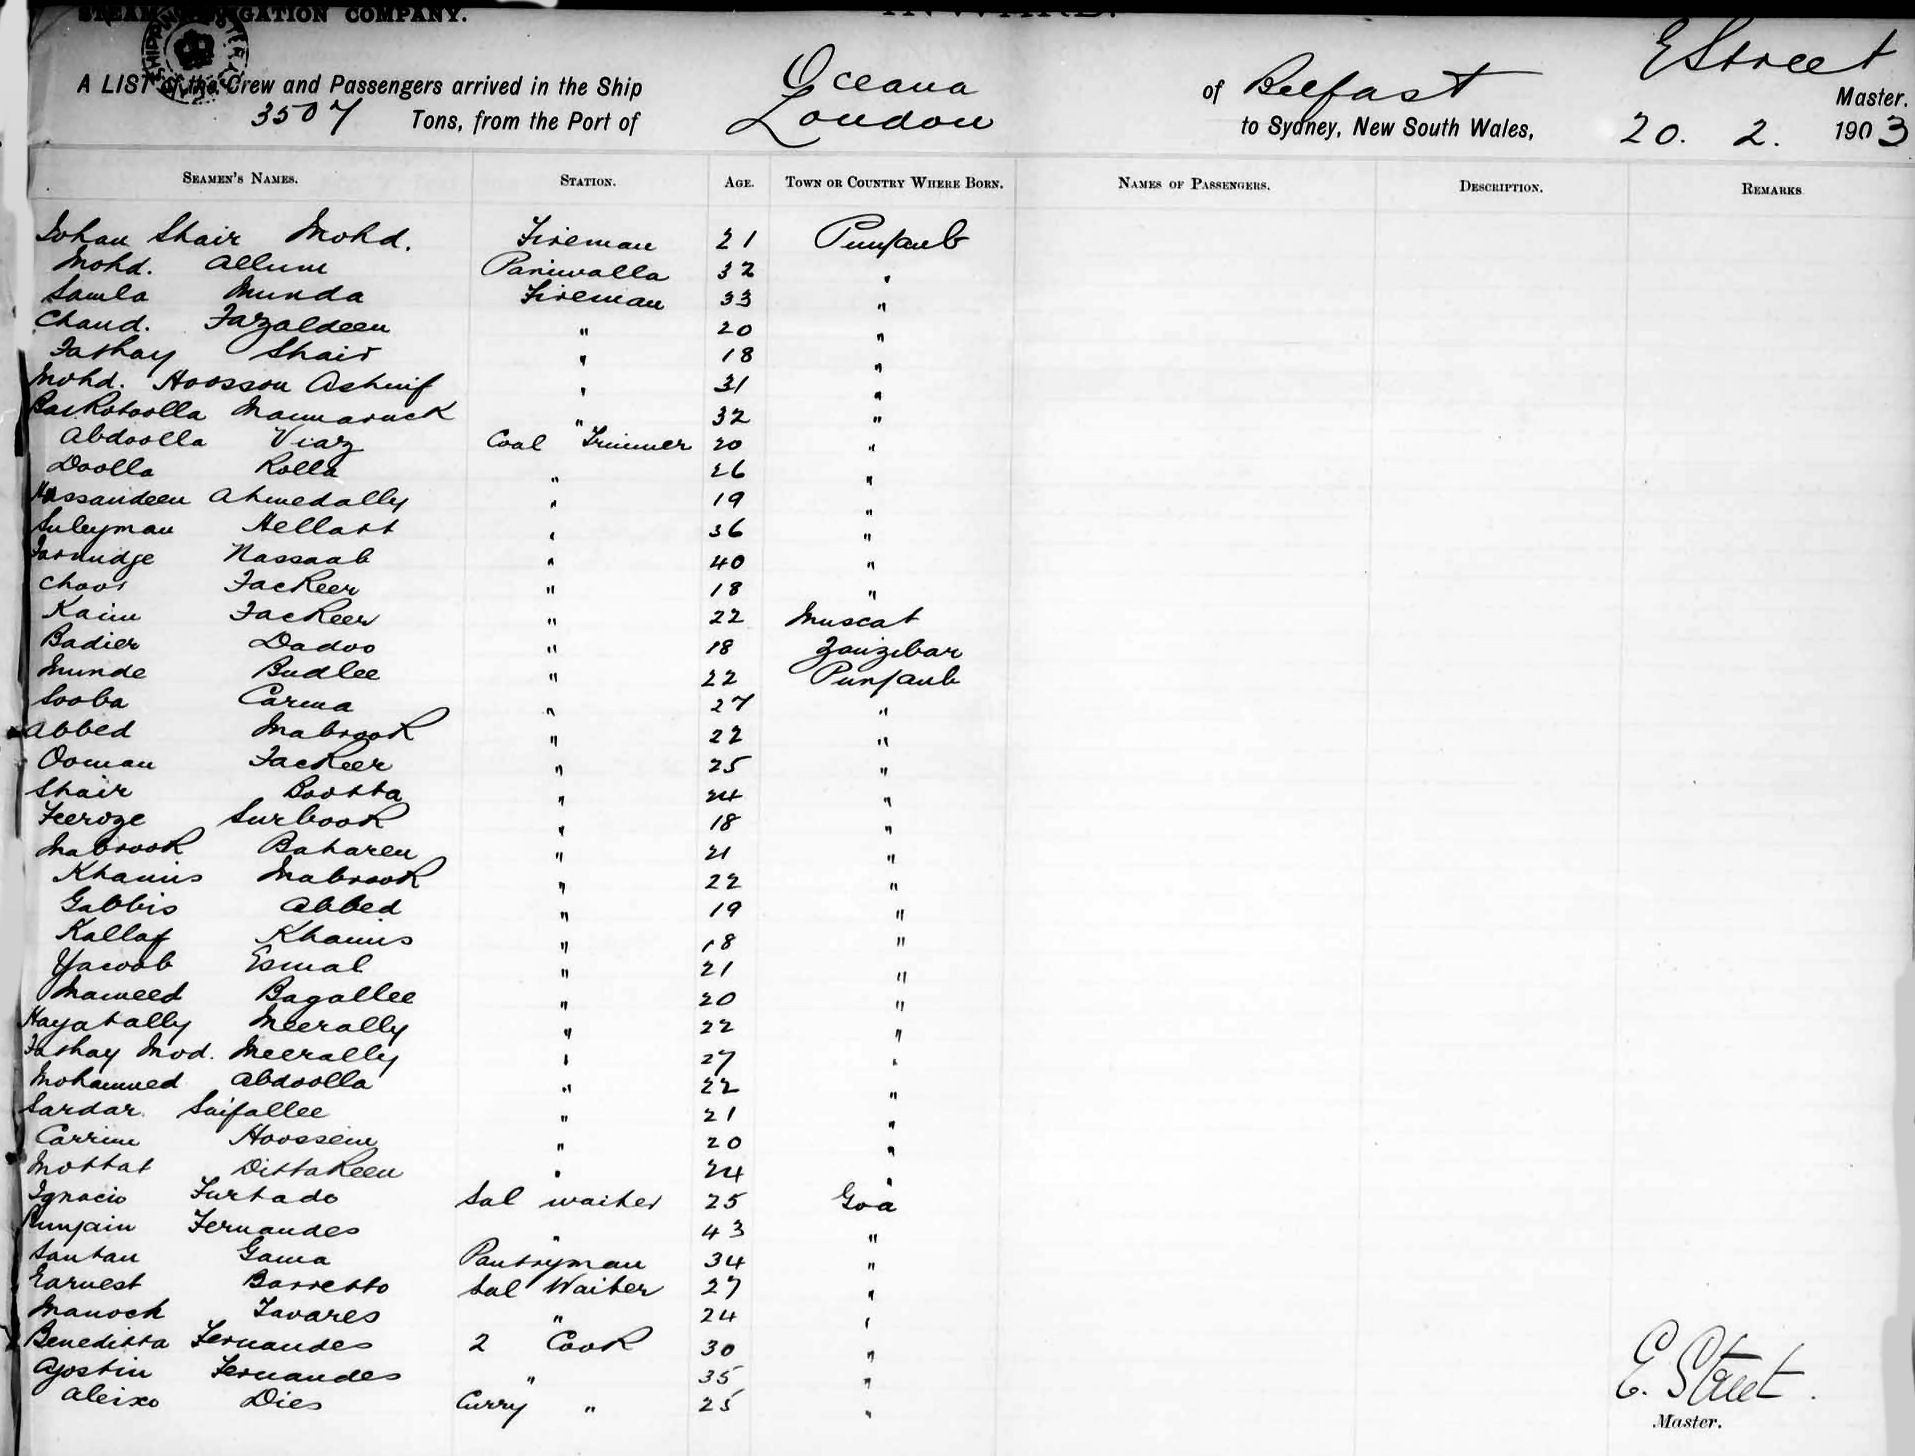 STEAM NAVIGATION COMPANY. INWARD.
A LIST of the Crew and Passengers arrived in the Ship Oceana of Belfast E Street Master.
3507 Tons, from the Port of London to Sydney, New South Wales, 20. 2. 1903
SEAMEN'S NAMES. STATION. AGE. TOWN OR COUNTRY WHERE BORN. NAMES OF PASSENGERS. DESCRIPTION. REMARKS
Johan Shair Mohd. Fireman 21 Punjaub
Mohd. Allum Paniwalla 32 "
Samla Munda Fireman 33 "
Chand. Fazaldeen " 20 "
Fathay Shair " 18 "
Mohd. Hoosson " 31 "
Barkotoolla " 32 "
Abdoolla Viaz Coal Trimmer 20 "
Doolla Rolla " 26 "
Hassandeen Ahmedally " 19 "
Suleyman " 36 "
Nassaab " 40 "
Choor Fackeer " 18 "
Kaim Fackeer " 22 Muscat
Badier Dadoo " 18 Zanzibar
Munde Budlee " 22 Punjaub
Sooba Carma " 27 "
Abbed Mabrook " 22 "
Ooman Fackeer " 25 "
Shair Bootta " 24 "
Feeroze Surbook " 18 "
Mabrook Baharen " 21 "
Khamis Mabrook " 22 "
Gabbis Abbed " 19 "
Kallaf Khamis " 18 "
Yacoob Esmal " 21 "
Maweed Bagallee " 20 "
Hayatally Meerally " 22 "
Fathay Mod. Meerally " 27 "
Mohammed Abdoolla " 22 "
Sardar Saifallee " 21 "
Carrim Hoossein " 20 "
Mottat Dittakeen " 24 "
Ignacio Furtado Sal waiter 25 Goa
Fernandes " 43 "
Santan Gama Pantryman 34 "
Earnest Barretto Sal Waiter 27 "
Manoch Tavares " 24 "
Beneditta Fernandes 2 Cook 30 "
Agostin Fernandes " 35 "
Aleixo Dies Curry " 25 "
E. Street.
Master.